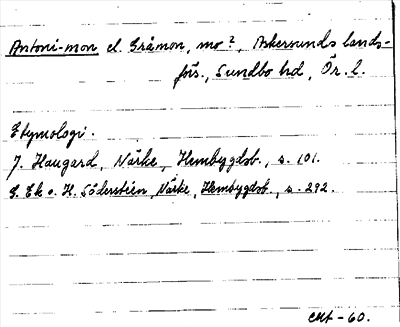 Antoni-mon el. Gråmon, mo?, Askersunds lands-
förs., Sundbo hd, Ör. l.
Etymologi.
J. Haugard, Närke, Hembygdsb., s. 101.
G. Ek o. H. Söderstéen, Närke, Hembygdsb., s. 292.
-60.